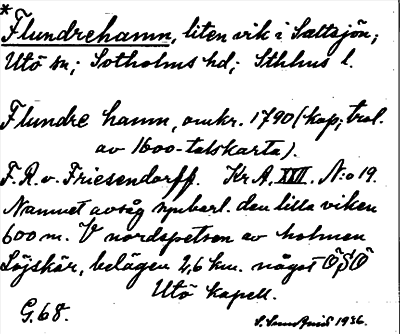 *
Flundrehamn, liten vik i Saltsjön;
Utö sn; Sotholms hd; Sthlms l.
Flundre hamn, omkr. 1790 (kop; trol.
av 1600-talskarta).
F.R. v. Friesendorff. Kr.A. XVII. N:o 19.
Namnet avsåg uppenbarl. den lilla viken
600 m. V nordspetsen av holmen
Löjskär, belägen 2,6 km. något ÖSÖ
Utö kapell.
G. 68.
1936.